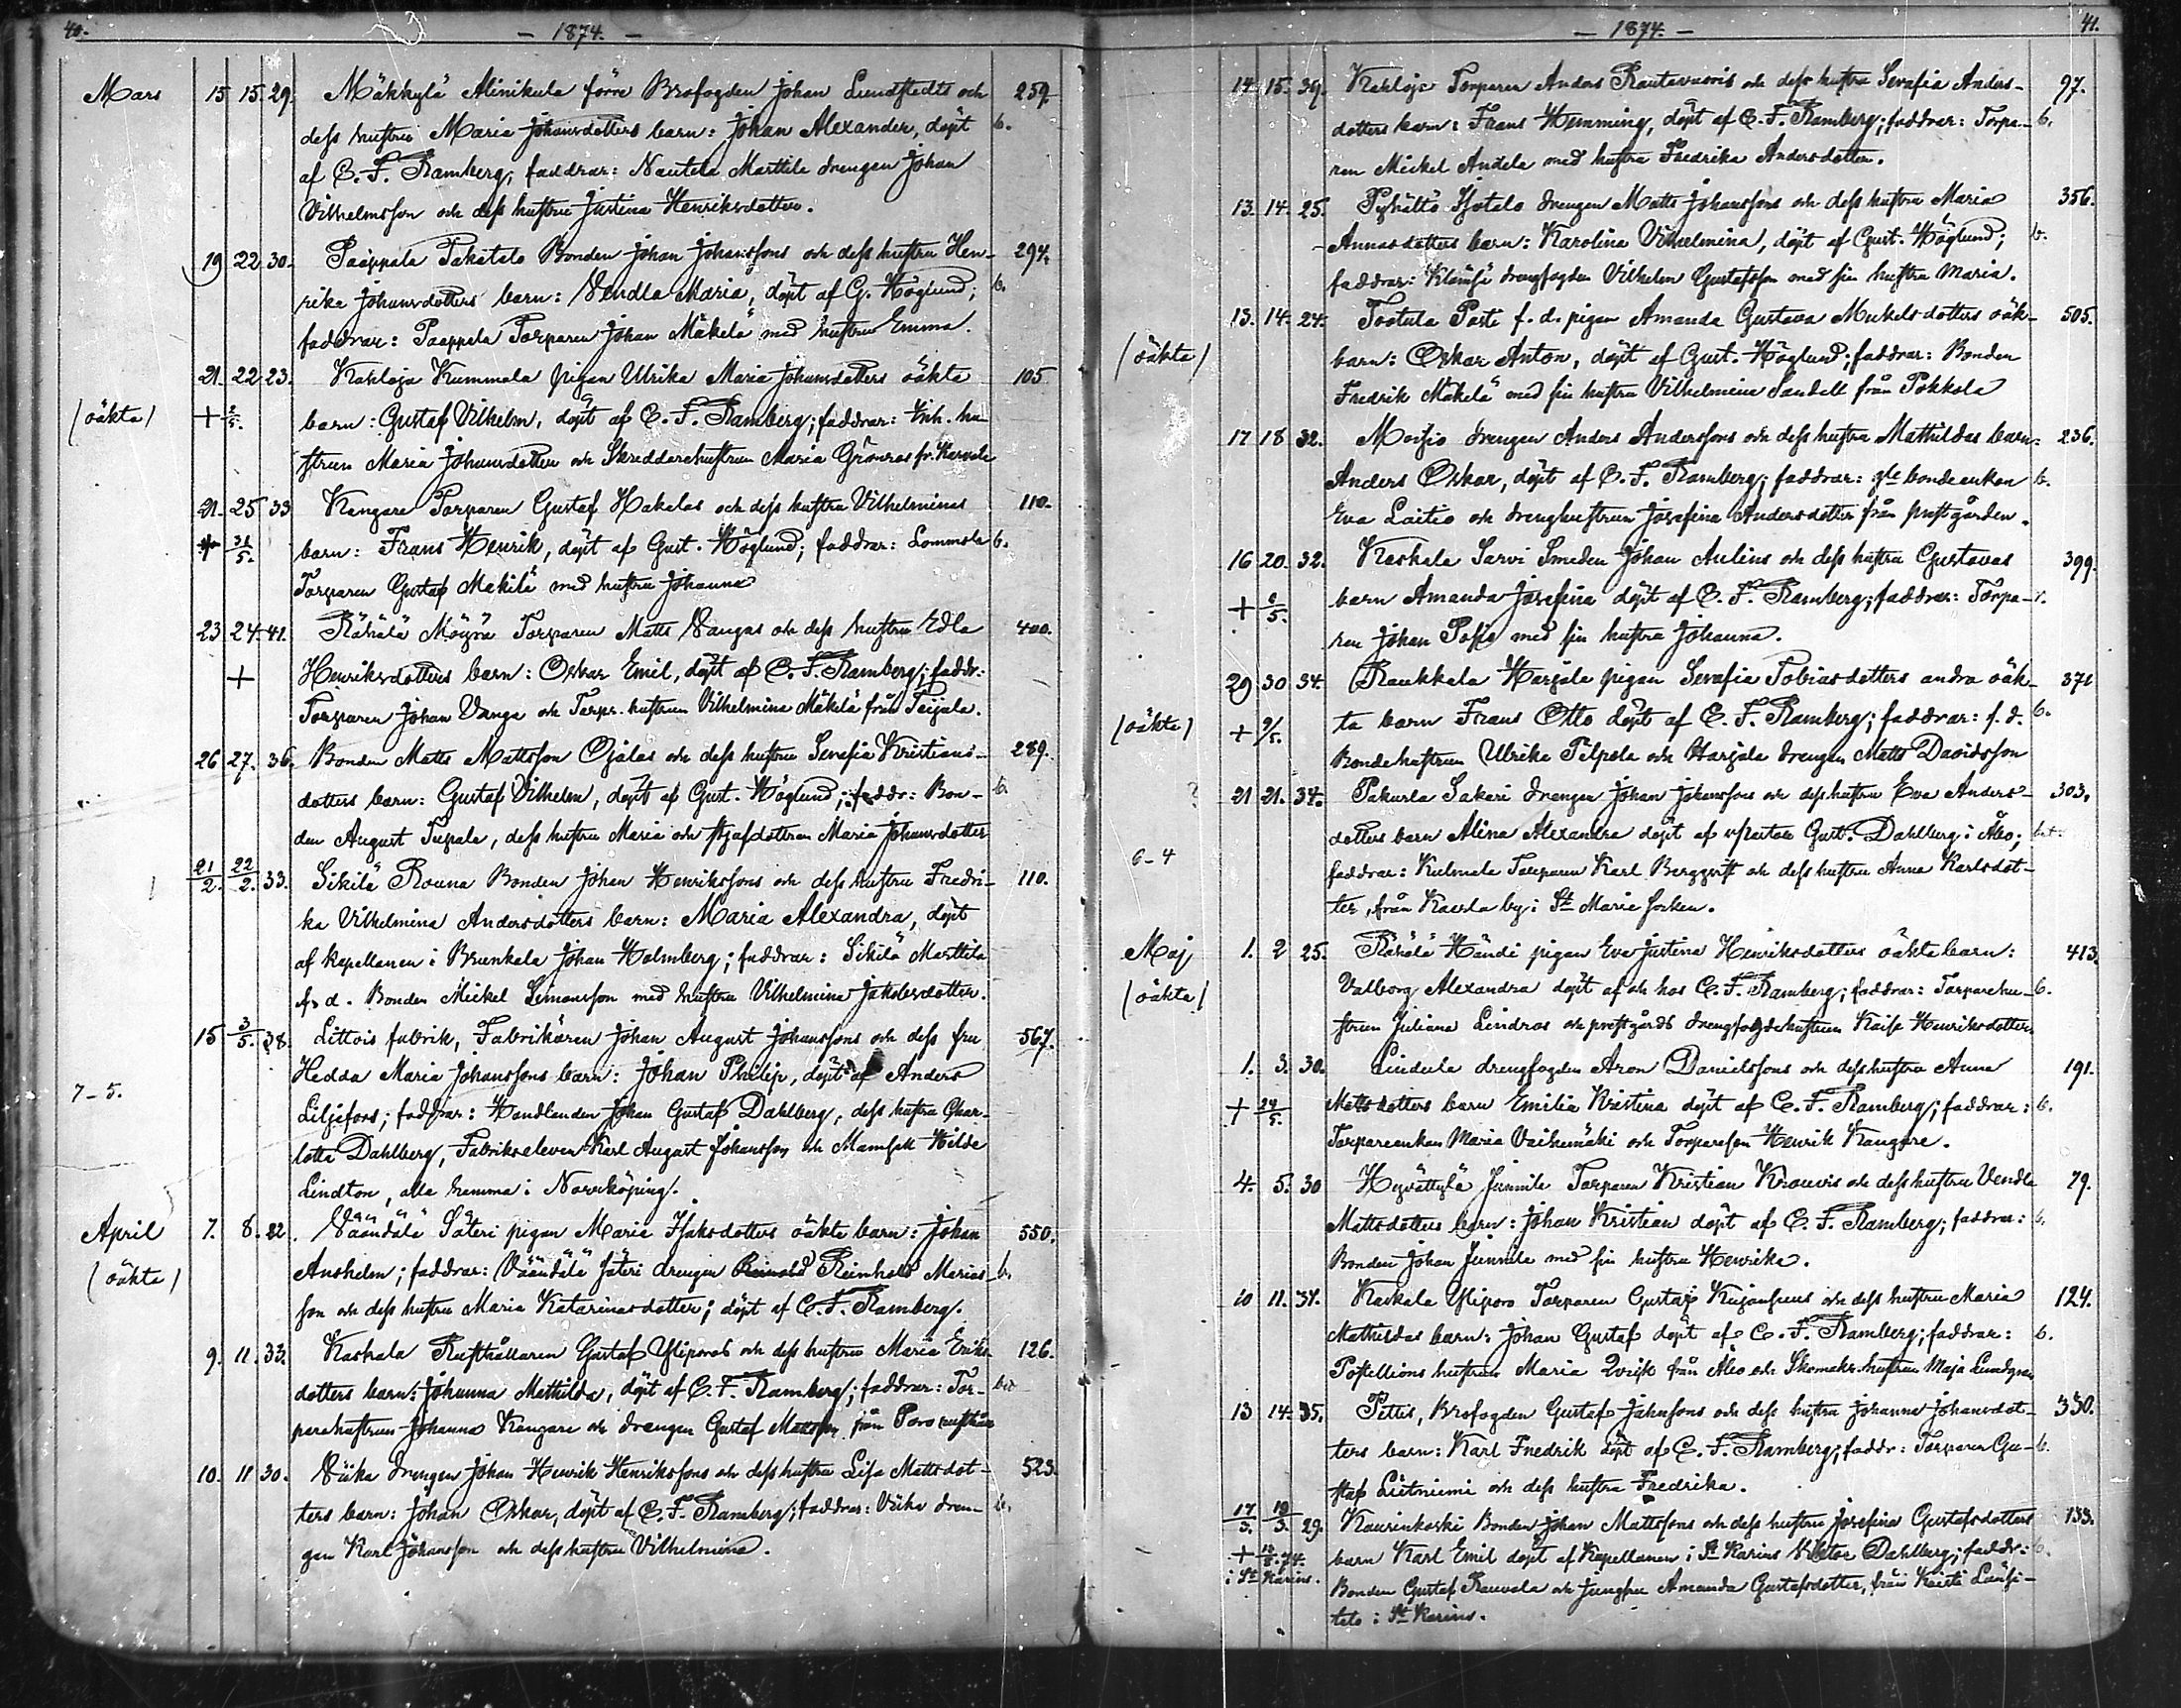 40.
— 1874. —
Mars 15 15. 29. Mäkkylä Alinikula förre Brofogden Johan Lundstedts och 259.
dess hustru Maria Johansdotters barn: Johan Alexander, döpt b.
af C. F. Ramberg; faddrar: Nautela Marttila drengen Johan
Vilhelmsson och dess hustru Justina Henriksdotter.
19 22 30. Paappala Takatalo Bonden Johan Johanssons och dess hustru Hen- 294.
rika Johansdotters barn: Vendla Maria, döpt af G. Höglund; b.
faddrar: Paappala Torparen Johan Mäkelä med hustru Emma.
21. 22 23. Kahloja Kummala pigan Ulrika Maria Johansdotters oäkta 105
(oäkta) + 2/5. barn: Gustaf Vilhelm, döpt af C. F. Ramberg; faddrar: Inh. hu-
strun Maria Johansdotter och Skreddarehustrun Maria Grönros fr.
21. 25 33 Kangare Torparen Gustaf Hakalas och dess hustru Vilhelminas 110.
+ 31/5. barn: Frans Henrik, döpt af Gust. Höglund; faddrar: Lommola b.
Torparen Gustaf Mäkilä med hustru Johanna
23. 24. 41. Rähälä Möyrä Torparen Matts Vangas och dess hustru Edla 400.
+ Henriksdotters barn: Oskar Emil, döpt af C. F. Ramberg; faddr:
Torparen Johan Vanga och Torpr. hustrun Vilhelmina Mäkilä från Teijala.
26 27. 36. Bonden Matts Mattsson Ojalas och dess hustru Serafia Kristians- 289.
dotters barn: Gustaf Vilhelm, döpt af Gust. Höglund; faddr: Bon- b.
den August dess hustru Maria och styfdottren Maria Johansdotter
21/2. 22/2. 33. Sikilä Rouna Bonden Johan Henrikssons och dess hustru Fredri- 110.
ka Vilhelmina Andersdotters barn: Maria Alexandra, döpt
af kapellanen i Brunkala Johan Holmberg; faddrar: Sikilä Marttila
f. d. Bonden Mickel Simonsson med hustru Vilhelmina Jakobsdotter.
15 3/5. 38. Littois fabrik, Fabrikören Johan August Johanssons och dess fru 567.
Hedda Maria Johanssons barn: Johan Philip, döpt af Anders
7–5. Liljefors; faddrar: Handlanden Johan Gustaf Dahlberg, dess hustru Char-
lotta Dahlberg, Fabrikseleven Karl August Johansson och Mamsell Hilda
Lindton, alla hemma i Norrköping.
April 7. 8. 22. Väändälä Säteri pigan Maria Isaksdotters oäkta barn: Johan 550.
(oäkta) Anshelm; faddrar: Väändälä Säteri drengen Reinhold Marias- b.
son och dess hustru Maria Katarinasdotter; döpt af C. F. Ramberg.
9. 11. 33. Kaskala Rusthållaren Gustaf Yliporos och dess hustru Maria Eriks- 126.
dotters barn: Johanna Mathilda, döpt af C. F. Ramberg; faddrar: Tor-
parehustrun Johanna Kangare och drengen Gustaf Mattsson från Poro rusthåll
10. 11 30. Väika drengen Johan Henrik Henrikssons och dess hustru Lisa Mattsdot- 523.
ters barn: Johan Oskar, döpt af C. F. Ramberg; faddrar: dren- b.
gen Karl Johansson och dess hustru Vilhelmina.
41.
— 1874. —
14. 15. 39. Kahloja Torparen Anders Rautavuoris och dess hustru Serafia Anders- 97.
dotters barn: Frans Hemming, döpt af C. F. Ramberg; faddrar: Torpa- b.
ren Mickel Andela med hustru Fredrika Andersdotter.
13. 14. 25. Pyhältö Isotalo drengen Matts Johanssons och dess hustru Maria 356.
Annasdotters barn: Karolina Vilhelmina, döpt af Gust. Höglund; b.
faddrar: drengfogden Vilhelm Gustafsson med sin hustru Maria.
13. 14. 24. Tootula Posti f. d. pigan Amanda Gustava Mickelsdotters oäk- 505.
(oäkta) barn: Oskar Anton, döpt af Gust. Höglund; faddrar: Bonden
Fredrik Mäkelä med sin hustru Vilhelmina Sandell från Pokkola
17 18 32. Moisio drengen Anders Anderssons och dess hustru Mathildas barn: 236.
Anders Oskar, döpt af C. F. Ramberg; faddrar: gla bondeenkan b.
Eva Laitio och drenghustrun Josefina Andersdotter från prestgården.
16 20. 32. Kaskala Sarvi Smeden Johan Aulins och dess hustru Gustavas 399.
+ 6/5. barn Amanda Josefina döpt af C. F. Ramberg; faddrar: Torpa-
ren Johan med sin hustru Johanna.
29 30 34. Raukkala Harjala pigan Serafia Tobiasdotters andra oäk- 371
(oäkta) + 9/5. ta barn Frans Otto döpt af C. F. Ramberg; faddrar: f. d. b.
Bondehustrun Ulrika Pilpola och Harjala drengen Matts Davidsson
? 21 21. 34. Pakurla Sakari drengen Johan Johanssons och dess hustru Eva Anders- 303.
dotters barn Alina Alexandra döpt af v/Pastor Gust. Dahlberg i Åbo;
6–4 faddrar: Kulmala Torparen Karl Bergqvist och dess hustru Anna Karlsdot-
ter, från Kaerla by i St Marie socken.
Maj 1. 2 25. Rähälä Händi pigan Eva Justina Henriksdotters oäkta barn: 413.
(oäkta) Valborg Alexandra döpt af och hos C. F. Ramberg; faddrar: Torparehu- b.
strun Juliana Lindros och prestgårds drengfogdehustrun Kaisa Henriksdotter.
1. 3. 30. Lindula drengfogden Aron Danielssons och dess hustru Anna 191.
+ 24/5. Mattsdotters barn Emilia Kristina döpt af C. F. Ramberg; faddrar: b.
Torpareenkan Maria Vaihemäki och Torpareson Henrik Kangare.
4. 5. 30 Hyvättylä Junnila Torparen Kristian Krouvis och dess hustru Vendla 79.
Mattsdotters barn: Johan Kristian döpt af C. F. Ramberg; faddrar: b.
Bonden Johan Junnila med sin hustru Henrika.
10 11. 34. Kaskala Yliporo Torparen Gustaf och dess hustru Maria 124.
Mathildas barn: Johan Gustaf döpt af C. F. Ramberg; faddrar: b.
Postillions hustrun Maria Qvist från Åbo och Skomakr.hustrun Maja Lundgren
13 14. 35. Pettis, Brofogden Gustaf Jahnsons och dess hustru Johanna Johansdot- 330.
ters barn: Karl Fredrik döpt af C. F. Ramberg; faddr: Torparen Gu- b.
staf Lietniemi och dess hustru Fredrika.
17/3. 19/3. 29. Kaurinkoski Bonden Johan Mattssons och dess hustru Josefina Gustafsdotters 133.
+ i St Karins. barn Karl Emil döpt af Kapellanen i St Karins Viktor Dahlberg; faddr: b.
Bonden Gustaf Rauvola och Jungfru Amanda Gustafsdotter, från
talo i St Karins.